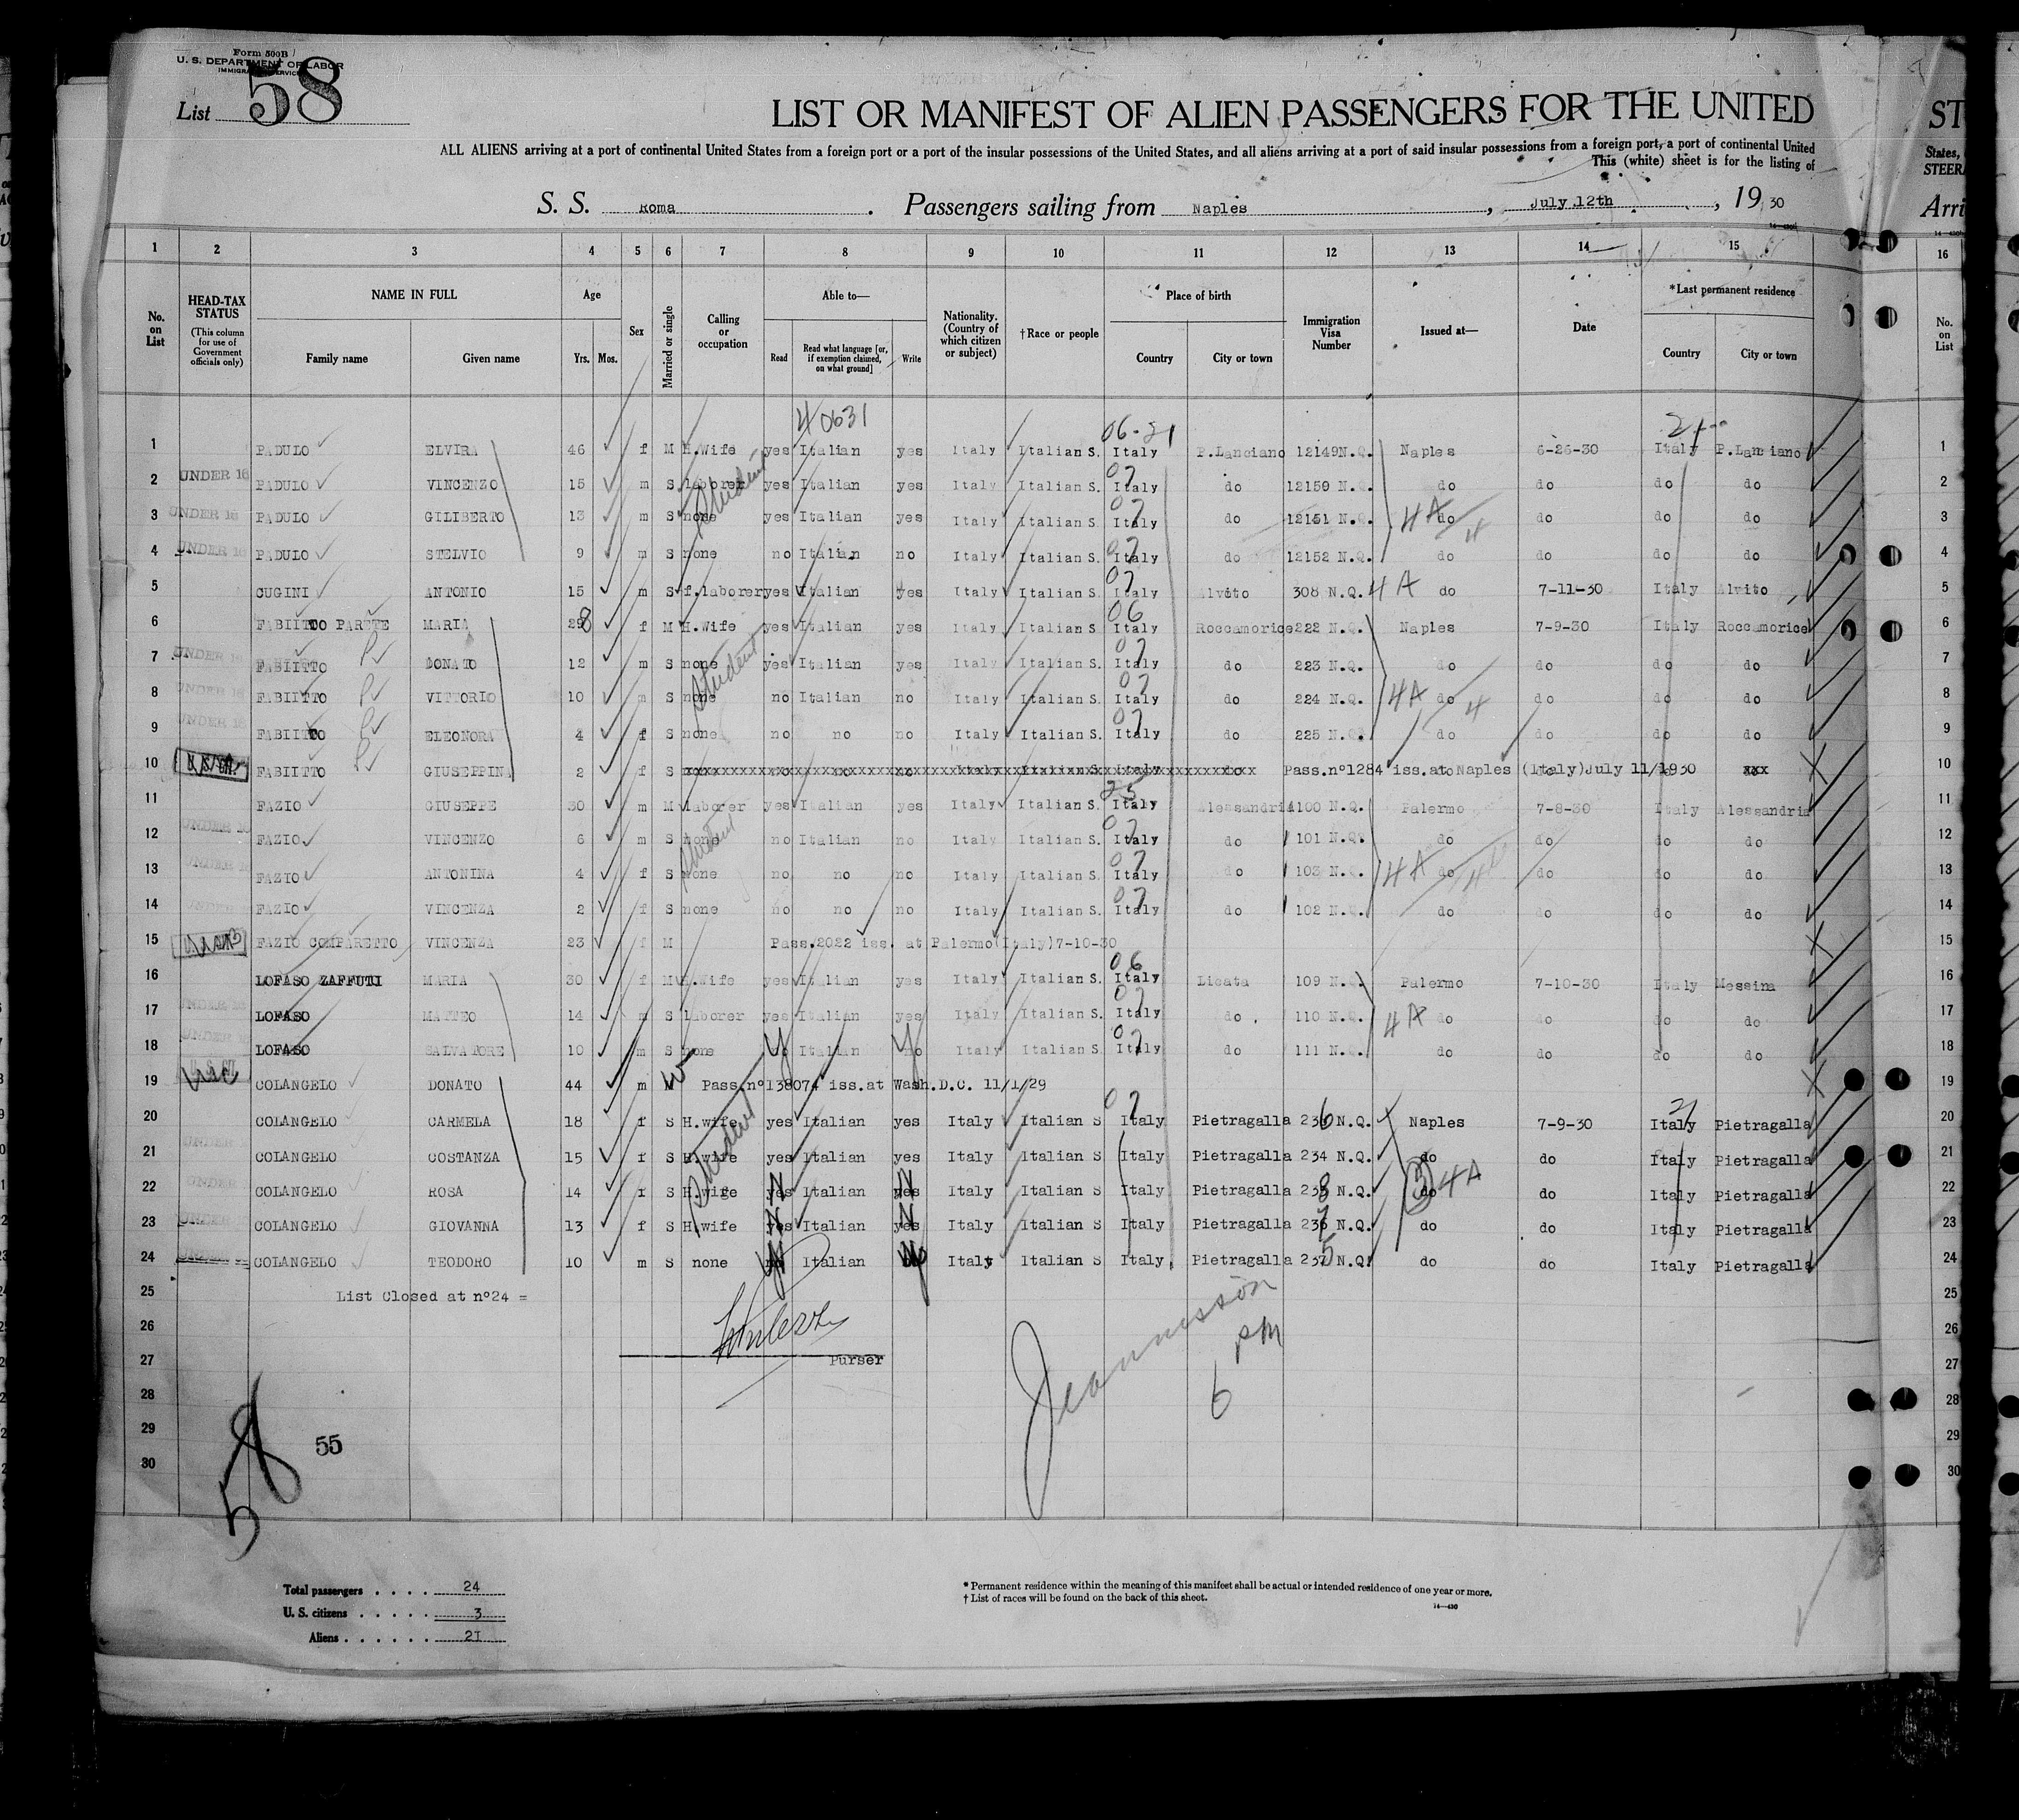 Form 500B
U. S. DEPARTMENT OF LABOR
IMMIGRATION SERVICE
List 58
LIST OR MANIFEST OF ALIEN PASSENGERS FOR THE UNITED
ALL ALIENS arriving at a port of continental United States from a foreign port or a port of the insular possessions of the United States, and all aliens arriving at a port of said insular possessions from a foreign port, a port of continental United
This (white) sheet is for the listing of
S. S. Roma. Passengers sailing from Naples, July 12th, 1930
1 2 3 4 5 6 7 8 9 10 11 12 13 14 15
No. on List
HEAD-TAX STATUS (This column for use of Government officials only)
NAME IN FULL Family name Given name
Age Yrs. Mos.
Sex
Married or single
Calling or occupation
Able to— Read Read what language [or, if exemption claimed, on what ground] Write
Nationality. (Country of which citizen or subject)
†Race or people
Place of birth Country City or town
Immigration Visa Number
Issued at—
Date
*Last permanent residence Country City or town
40631
1 PADULO ELVIRA 46 f M H.Wife yes Italian yes Italy Italian S. Italy P.Lanciano 12149N.Q. Naples 6-26-30 Italy P.Lanciano 1
2 UNDER 16 PADULO VINCENZO 15 m S laborer yes Italian yes Italy Italian S. Italy do 12150 N.Q. do do do do 2
3 UNDER 16 PADULO GILIBERTO 13 m S none yes Italian yes Italy Italian S. Italy do 12151 N.Q. 4A do do do do 3
4 UNDER 16 PADULO STELVIO 9 m S none no Italian no Italy Italian S. Italy do 12152 N.Q. do do do do 4
5 CUGINI ANTONIO 15 m S f.laborer yes Italian yes Italy Italian S. Italy Alvito 308 N.Q. 4A do 7-11-30 Italy Alvito 5
6 FABIITTO PARETE MARIA 28 f M H.Wife yes Italian yes Italy Italian S. Italy Roccamorice 222 N.Q. Naples 7-9-30 Italy Roccamorice 6
7 UNDER 16 FABIITTO DONATO 12 m S none yes Italian yes Italy Italian S. Italy do 223 N.Q. do do do do 7
8 UNDER 16 FABIITTO VITTORIO 10 m S none no Italian no Italy Italian S. Italy do 224 N.Q. 4A do do do do 8
9 UNDER 16 FABIITTO ELEONORA 4 f S none no no no Italy Italian S. Italy do 225 N.Q. do do do do 9
10 FABIITTO GIUSEPPINA 2 f S Pass.nº1284 iss.at Naples (Italy)July 11/1930 xxx 10
11 FAZIO GIUSEPPE 30 m M laborer yes Italian yes Italy Italian S. Italy Alessandria 100 N.Q. Palermo 7-8-30 Italy Alessandria 11
12 FAZIO VINCENZO 6 m S none no Italian no Italy Italian S. Italy do 101 N.Q. do do do do 12
13 FAZIO ANTONINA 4 f S none no no no Italy Italian S. Italy do 103 N.Q. 4A do do do do 13
14 FAZIO VINCENZA 2 f S none no no no Italy Italian S. Italy do 102 N.Q. do do do do 14
15 FAZIO COMPARETTO VINCENZA 23 f M Pass.2022 iss. at Palermo(Italy)7-10-30 15
16 LOFASO ZAFFUTI MARIA 30 f M H.Wife yes Italian yes Italy Italian S. Italy Licata 109 N.Q. Palermo 7-10-30 Italy Messina 16
17 LOFASO MATTEO 14 m S laborer yes Italian yes Italy Italian S. Italy do 110 N.Q. 4A do do do do 17
18 LOFASO SALVATORE 10 m S none no Italian no Italy Italian S. Italy do 111 N.Q. do do do do 18
19 COLANGELO DONATO 44 m M Pass.nº138074 iss.at Wash.D.C. 11/1/29 19
20 COLANGELO CARMELA 18 f S H.wife yes Italian yes Italy Italian S Italy Pietragalla 236 N.Q. Naples 7-9-30 Italy Pietragalla 20
21 COLANGELO COSTANZA 15 f S H.wife yes Italian yes Italy Italian S Italy Pietragalla 234 N.Q. do do Italy Pietragalla 21
22 COLANGELO ROSA 14 f S H.wife yes Italian yes Italy Italian S Italy Pietragalla 238 N.Q. do 4A do Italy Pietragalla 22
23 COLANGELO GIOVANNA 13 f S H.wife yes Italian yes Italy Italian S Italy Pietragalla 237 N.Q. do do Italy Pietragalla 23
24 COLANGELO TEODORO 10 m S none no Italian Italy Italian S Italy Pietragalla 235 N.Q. do do Italy Pietragalla 24
25 List Closed at nº24 = 25
26 26
27 Purser 27
28 28
29 55 29
30 30
58
6 PM
Total passengers . . . . 24
U. S. citizens . . . . . 3
Aliens . . . . . . 21
* Permanent residence within the meaning of this manifest shall be actual or intended residence of one year or more.
† List of races will be found on the back of this sheet.
14—430
ST
States,
STEER
Arri
16
No. on List